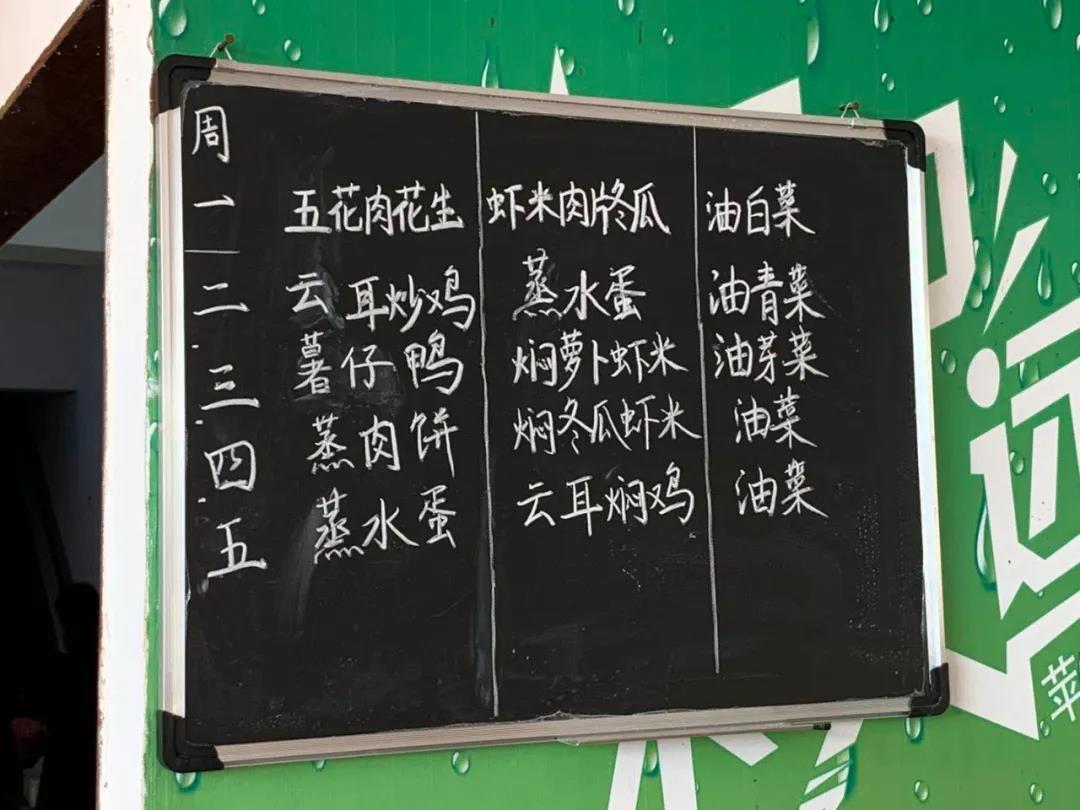 周
一 五花肉花生 虾米肉片冬瓜 油白菜
二 云耳炒鸡 蒸水蛋 油青菜
三 薯仔鸭 焖萝卜虾米 油芽菜
四 蒸肉饼 焖冬瓜虾米 油菜
五 蒸水蛋 云耳焖鸡 油菜